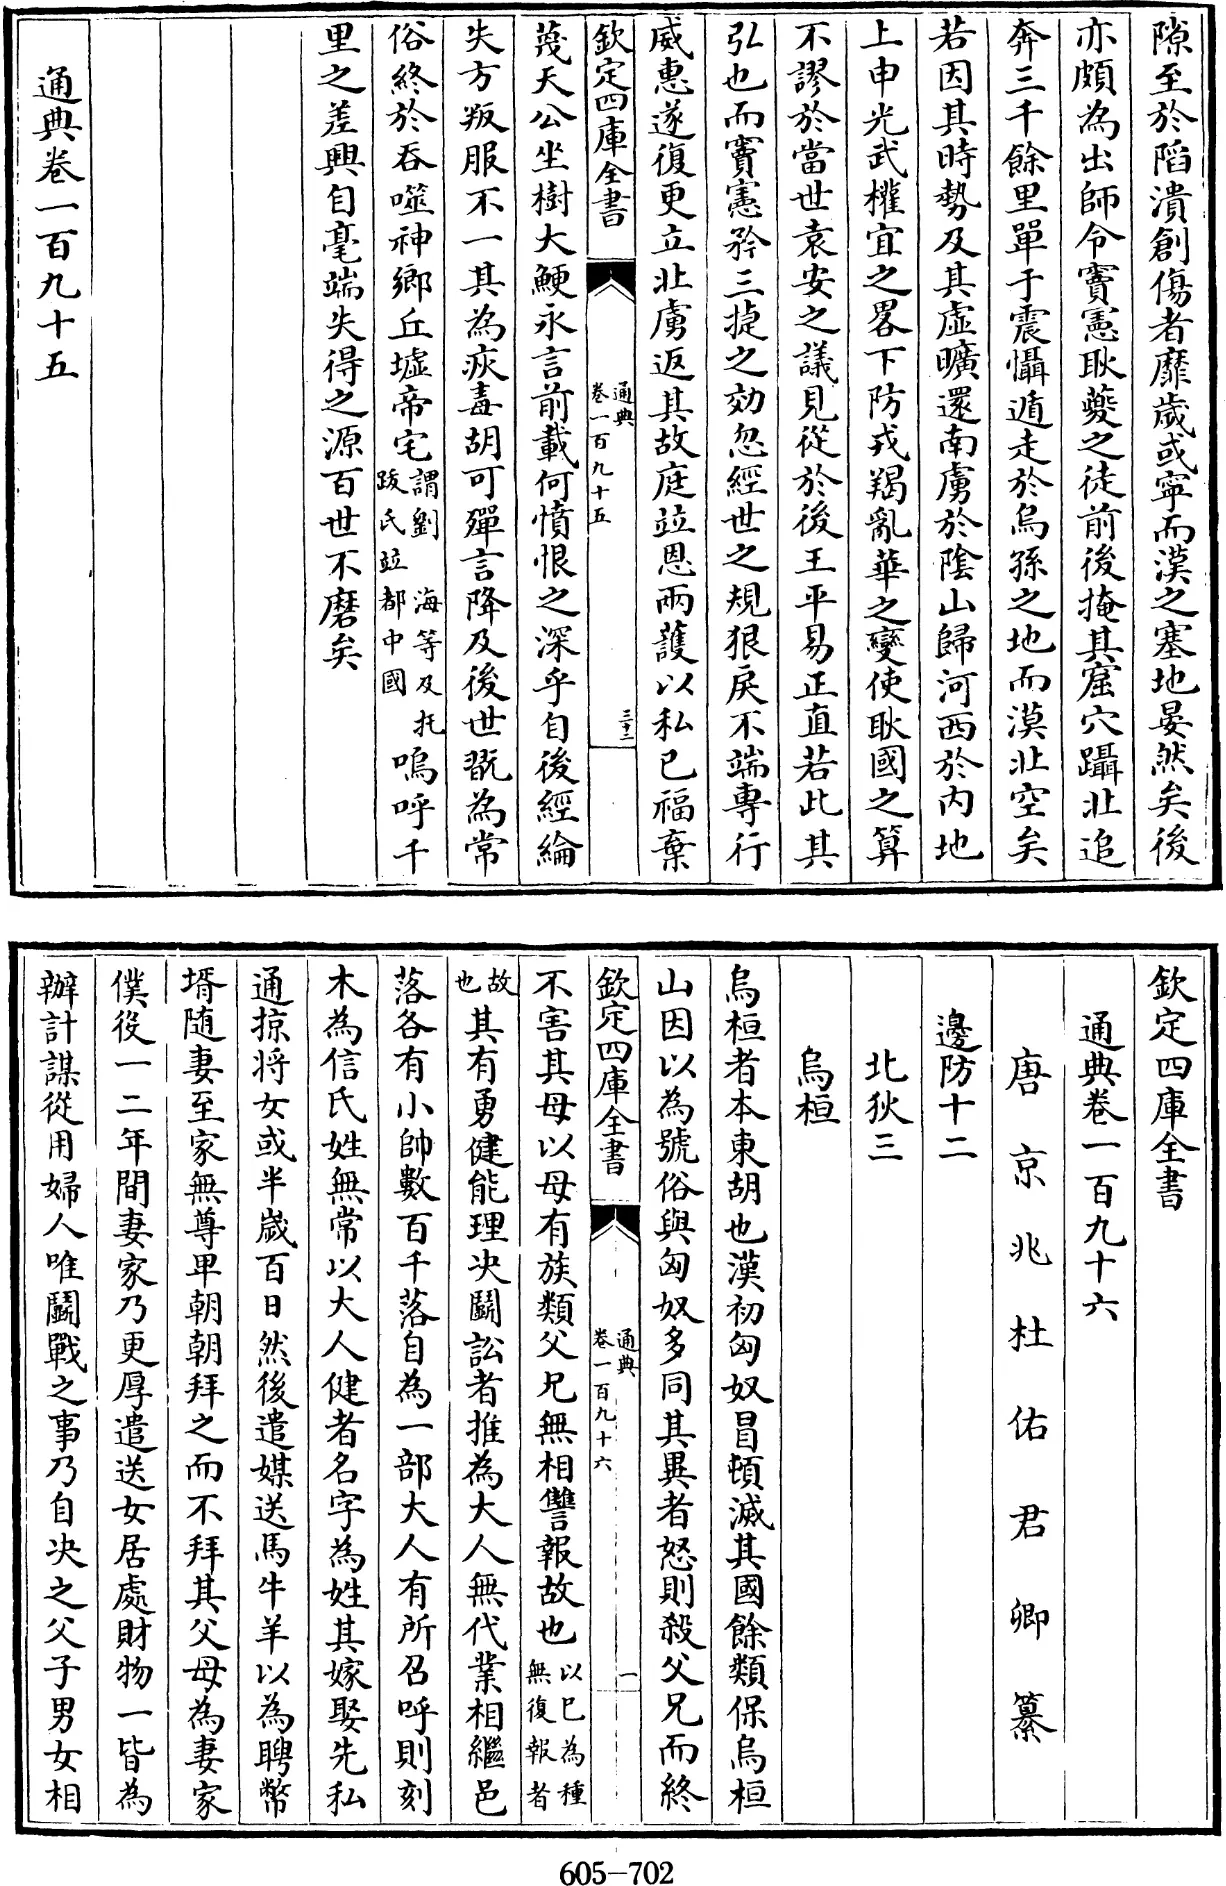 隙至於陷潰創傷者靡歲或寧而漢之塞地晏然矣後
亦頗為出師令竇憲耿夔之徒前後掩其窟穴躡北追
奔三千餘里單于震懾遁走於烏孫之地而漠北空矣
若因其時勢及其虛曠還南虜於陰山歸河西於內地
上申光武權宜之畧下防戎羯亂華之變使耿國之算
不謬於當世袁安之議見從於後王平易正直若此其
弘也而竇憲矜三捷之効忽經世之規狠戾不端專行
威惠遂復更立北虜返其故庭竝恩兩護以私已福棄
欽定四庫全書
通典
卷一百九十五
三十二
蔑天公坐樹大鯁永言前載何憤恨之深乎自後經綸
失方叛服不一其為疢毒胡可殫言降及後世翫為常
俗終於吞噬神鄉丘墟帝宅謂劉海等及托
跋氏竝都中國嗚呼千
里之差興自毫端失得之源百世不磨矣
通典卷一百九十五
欽定四庫全書
通典卷一百九十六
唐京兆杜佑君卿纂
邊防十二
北狄三
烏桓
烏桓者本東胡也漢初匈奴冒頓滅其國餘類保烏桓
山因以為號俗與匈奴多同其異者怒則殺父兄而終
欽定四庫全書
通典
卷一百九十六
一
不害其母以母有族類父兄無相讐報故也以已為種
無復報者
故
也其有勇健能理決鬭訟者推為大人無代業相繼邑
落各有小帥數百千落自為一部大人有所召呼則刻
木為信氏姓無常以大人健者名字為姓其嫁娶先私
通掠將女或半歲百日然後遣媒送馬牛羊以為聘幣
壻隨妻至家無尊卑朝朝拜之而不拜其父母為妻家
僕役一二年間妻家乃更厚遣送女居處財物一皆為
辦計謀從用婦人唯鬭戰之事乃自決之父子男女相
605-702